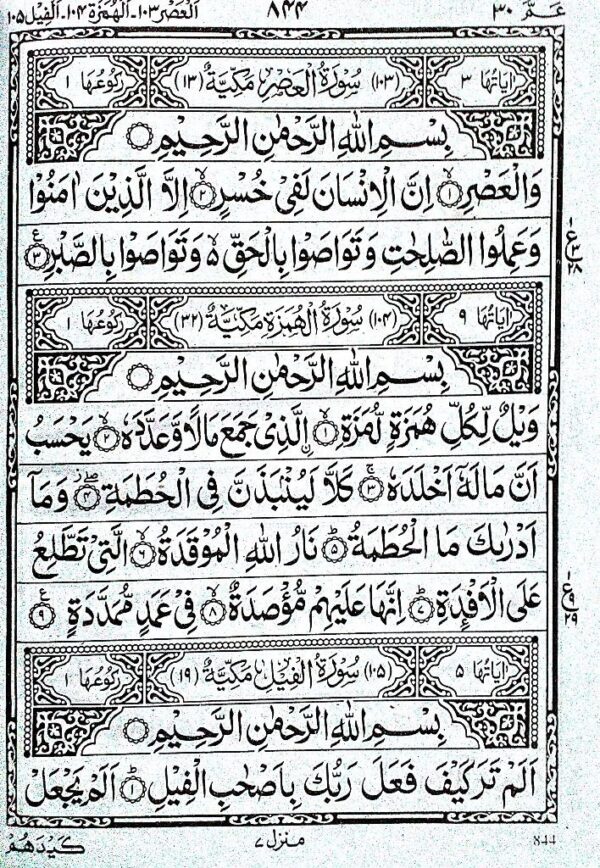 عَمَّ ٣٠ ٨٤٤ اَلْعَصْر ١٠٣۔اَلْهُمَزَة ١٠٤۔اَلْفِيْل ١٠٥
اٰيَاتُهَا ٣ (١٠٣) سُوْرَةُ الْعَصْرِ مَكِّيَّةٌ (١٣) رُكُوْعُهَا ١
بِسْمِ اللّٰهِ الرَّحْمٰنِ الرَّحِيْمِ
وَالْعَصْرِ ١ اِنَّ الْاِنْسَانَ لَفِيْ خُسْرٍ ٢ اِلَّا الَّذِيْنَ اٰمَنُوْا
وَعَمِلُوا الصّٰلِحٰتِ وَتَوَاصَوْا بِالْحَقِّ ۵ وَتَوَاصَوْا بِالصَّبْرِ ٣
١ ع ٣ ٢٨
اٰيَاتُهَا ٩ (١٠٤) سُوْرَةُ الْهُمَزَةِ مَكِّيَّةٌ (٣٢) رُكُوْعُهَا ١
بِسْمِ اللّٰهِ الرَّحْمٰنِ الرَّحِيْمِ
وَيْلٌ لِّكُلِّ هُمَزَةٍ لُّمَزَةٍ ١ اِلَّذِيْ جَمَعَ مَالًا وَّعَدَّدَهٗ ٢ يَحْسَبُ
اَنَّ مَالَهٗٓ اَخْلَدَهٗ ٣ كَلَّا لَيُنْۢبَذَنَّ فِي الْحُطَمَةِ ٤ وَمَآ
اَدْرٰىكَ مَا الْحُطَمَةُ ٥ نَارُ اللّٰهِ الْمُوْقَدَةُ ٦ الَّتِيْ تَطَّلِعُ
عَلَى الْاَفْـِٕدَةِ ٧ اِنَّهَا عَلَيْهِمْ مُّؤْصَدَةٌ ٨ فِيْ عَمَدٍ مُّمَدَّدَةٍ ٩
١ ع ٩ ٢٩
اٰيَاتُهَا ٥ (١٠٥) سُوْرَةُ الْفِيْلِ مَكِّيَّةٌ (١٩) رُكُوْعُهَا ١
بِسْمِ اللّٰهِ الرَّحْمٰنِ الرَّحِيْمِ
اَلَمْ تَرَ كَيْفَ فَعَلَ رَبُّكَ بِاَصْحٰبِ الْفِيْلِ ١ اَلَمْ يَجْعَلْ
844 منزل ٧ كَيْدَهُمْ